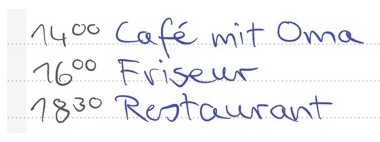 14⁰⁰ Café mit Oma
16⁰⁰ Friseur
18³⁰ Restaurant